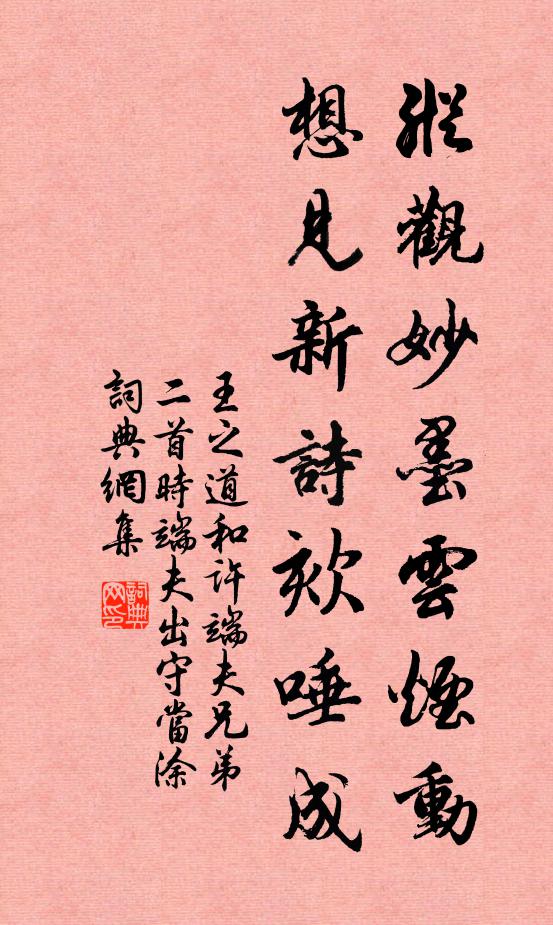 縱觀妙墨雲煙動
想見新詩欬唾成
王之道和許端夫兄弟
二首時端夫出守當涂
詞典網集
詞典
网印